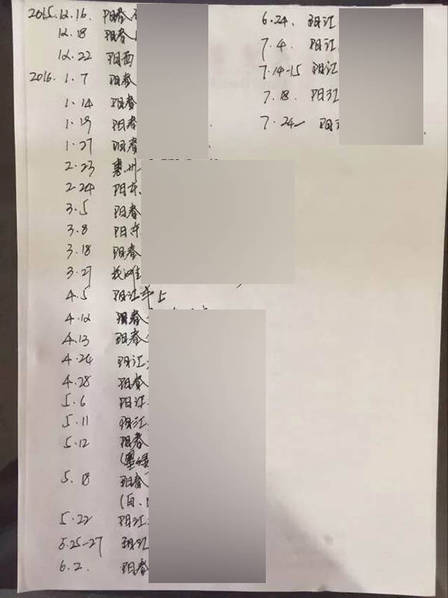 2015.12.16 阳春
12.18 阳春
12.22 阳西
2016.1.7 阳春
1.14 阳春
1.19 阳春
1.27 阳春
2.23 惠州
2.24 阳东
3.5 阳春
3.8 阳东
3.18 阳春
3.29
4.5 阳江
4.12 阳春
4.13 阳春
4.24 阳江
4.28 阳春
5.6 阳江
5.11 阳江
5.12 阳春
5.18 阳春
(白
5.22 阳江
5.25-27 阳江
6.2 阳春
6.24 阳江
7.4 阳江
7.14-15 阳江
7.18 阳江
7.24 阳江